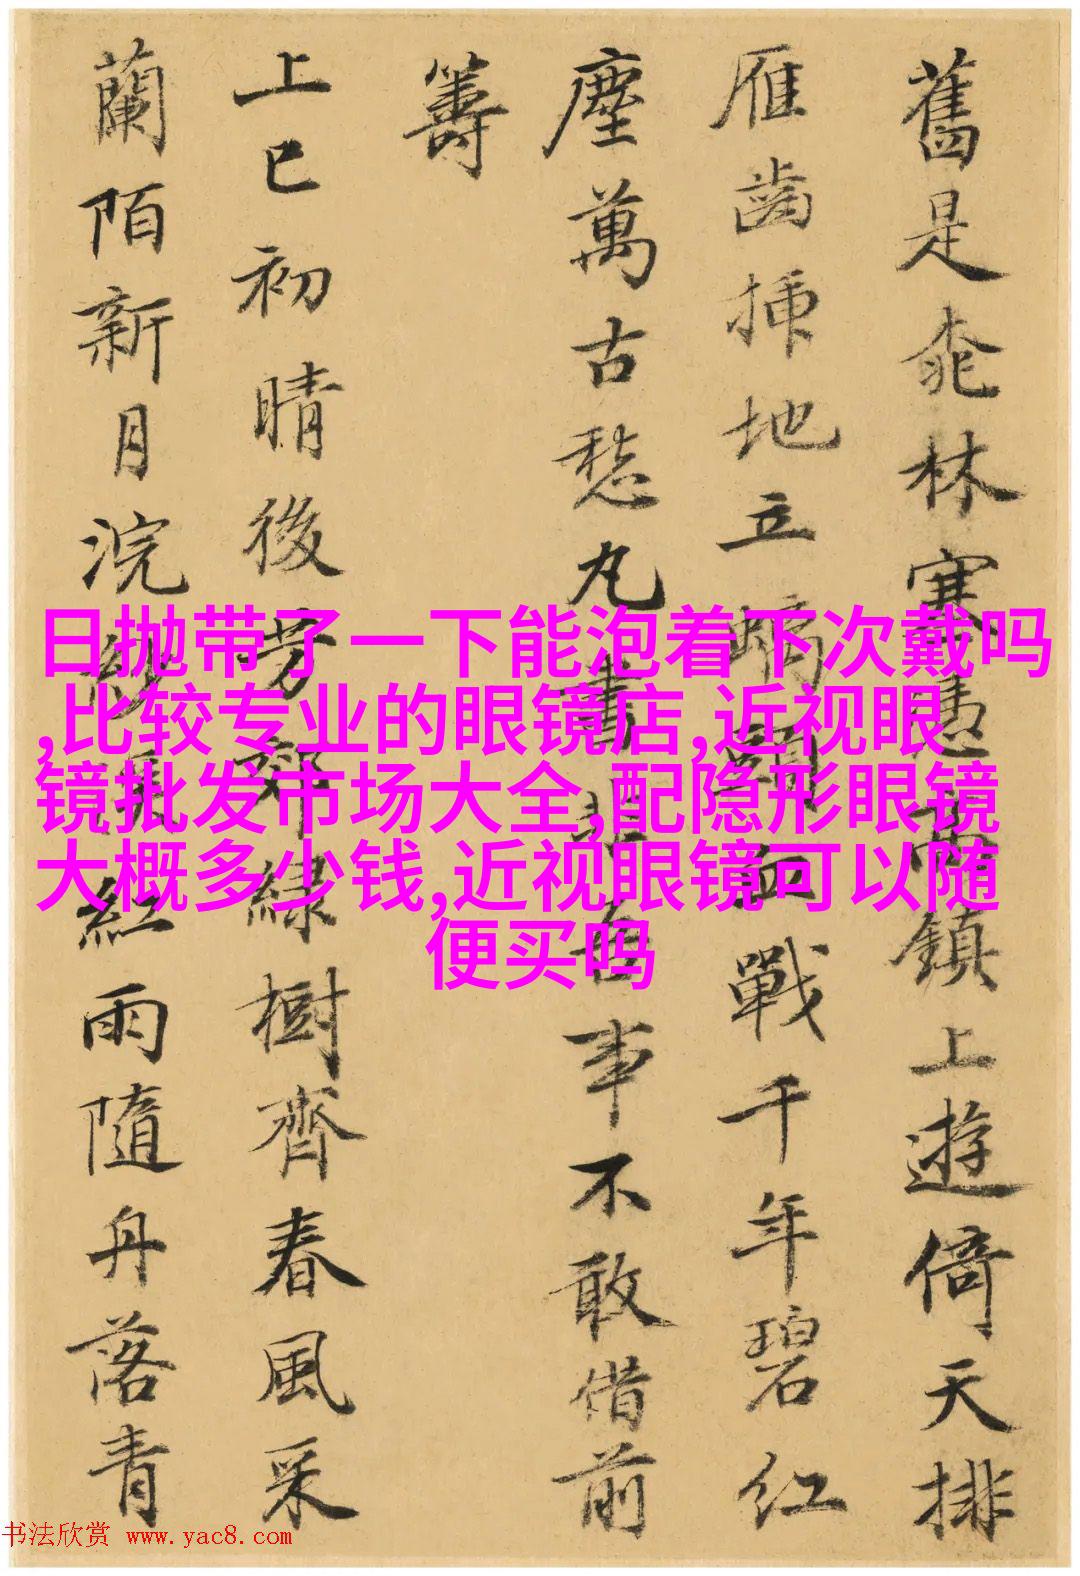 舊是桃林塞憑高鎮上遊倚天排
雁齒插地立螭頭血戰千年碧紅
塵萬古愁丸書非吾事不敢借前
籌
上巳初晴後芳郊綠樹齊春風采
蘭陌新月浣紗溪紅雨隨舟落青
日抛带了一下能泡着下次戴吗
,比较专业的眼镜店,近视眼
镜批发市场大全,配隐形眼镜
大概多少钱,近视眼镜可以随
便买吗
书法欣赏 www.yac8.com